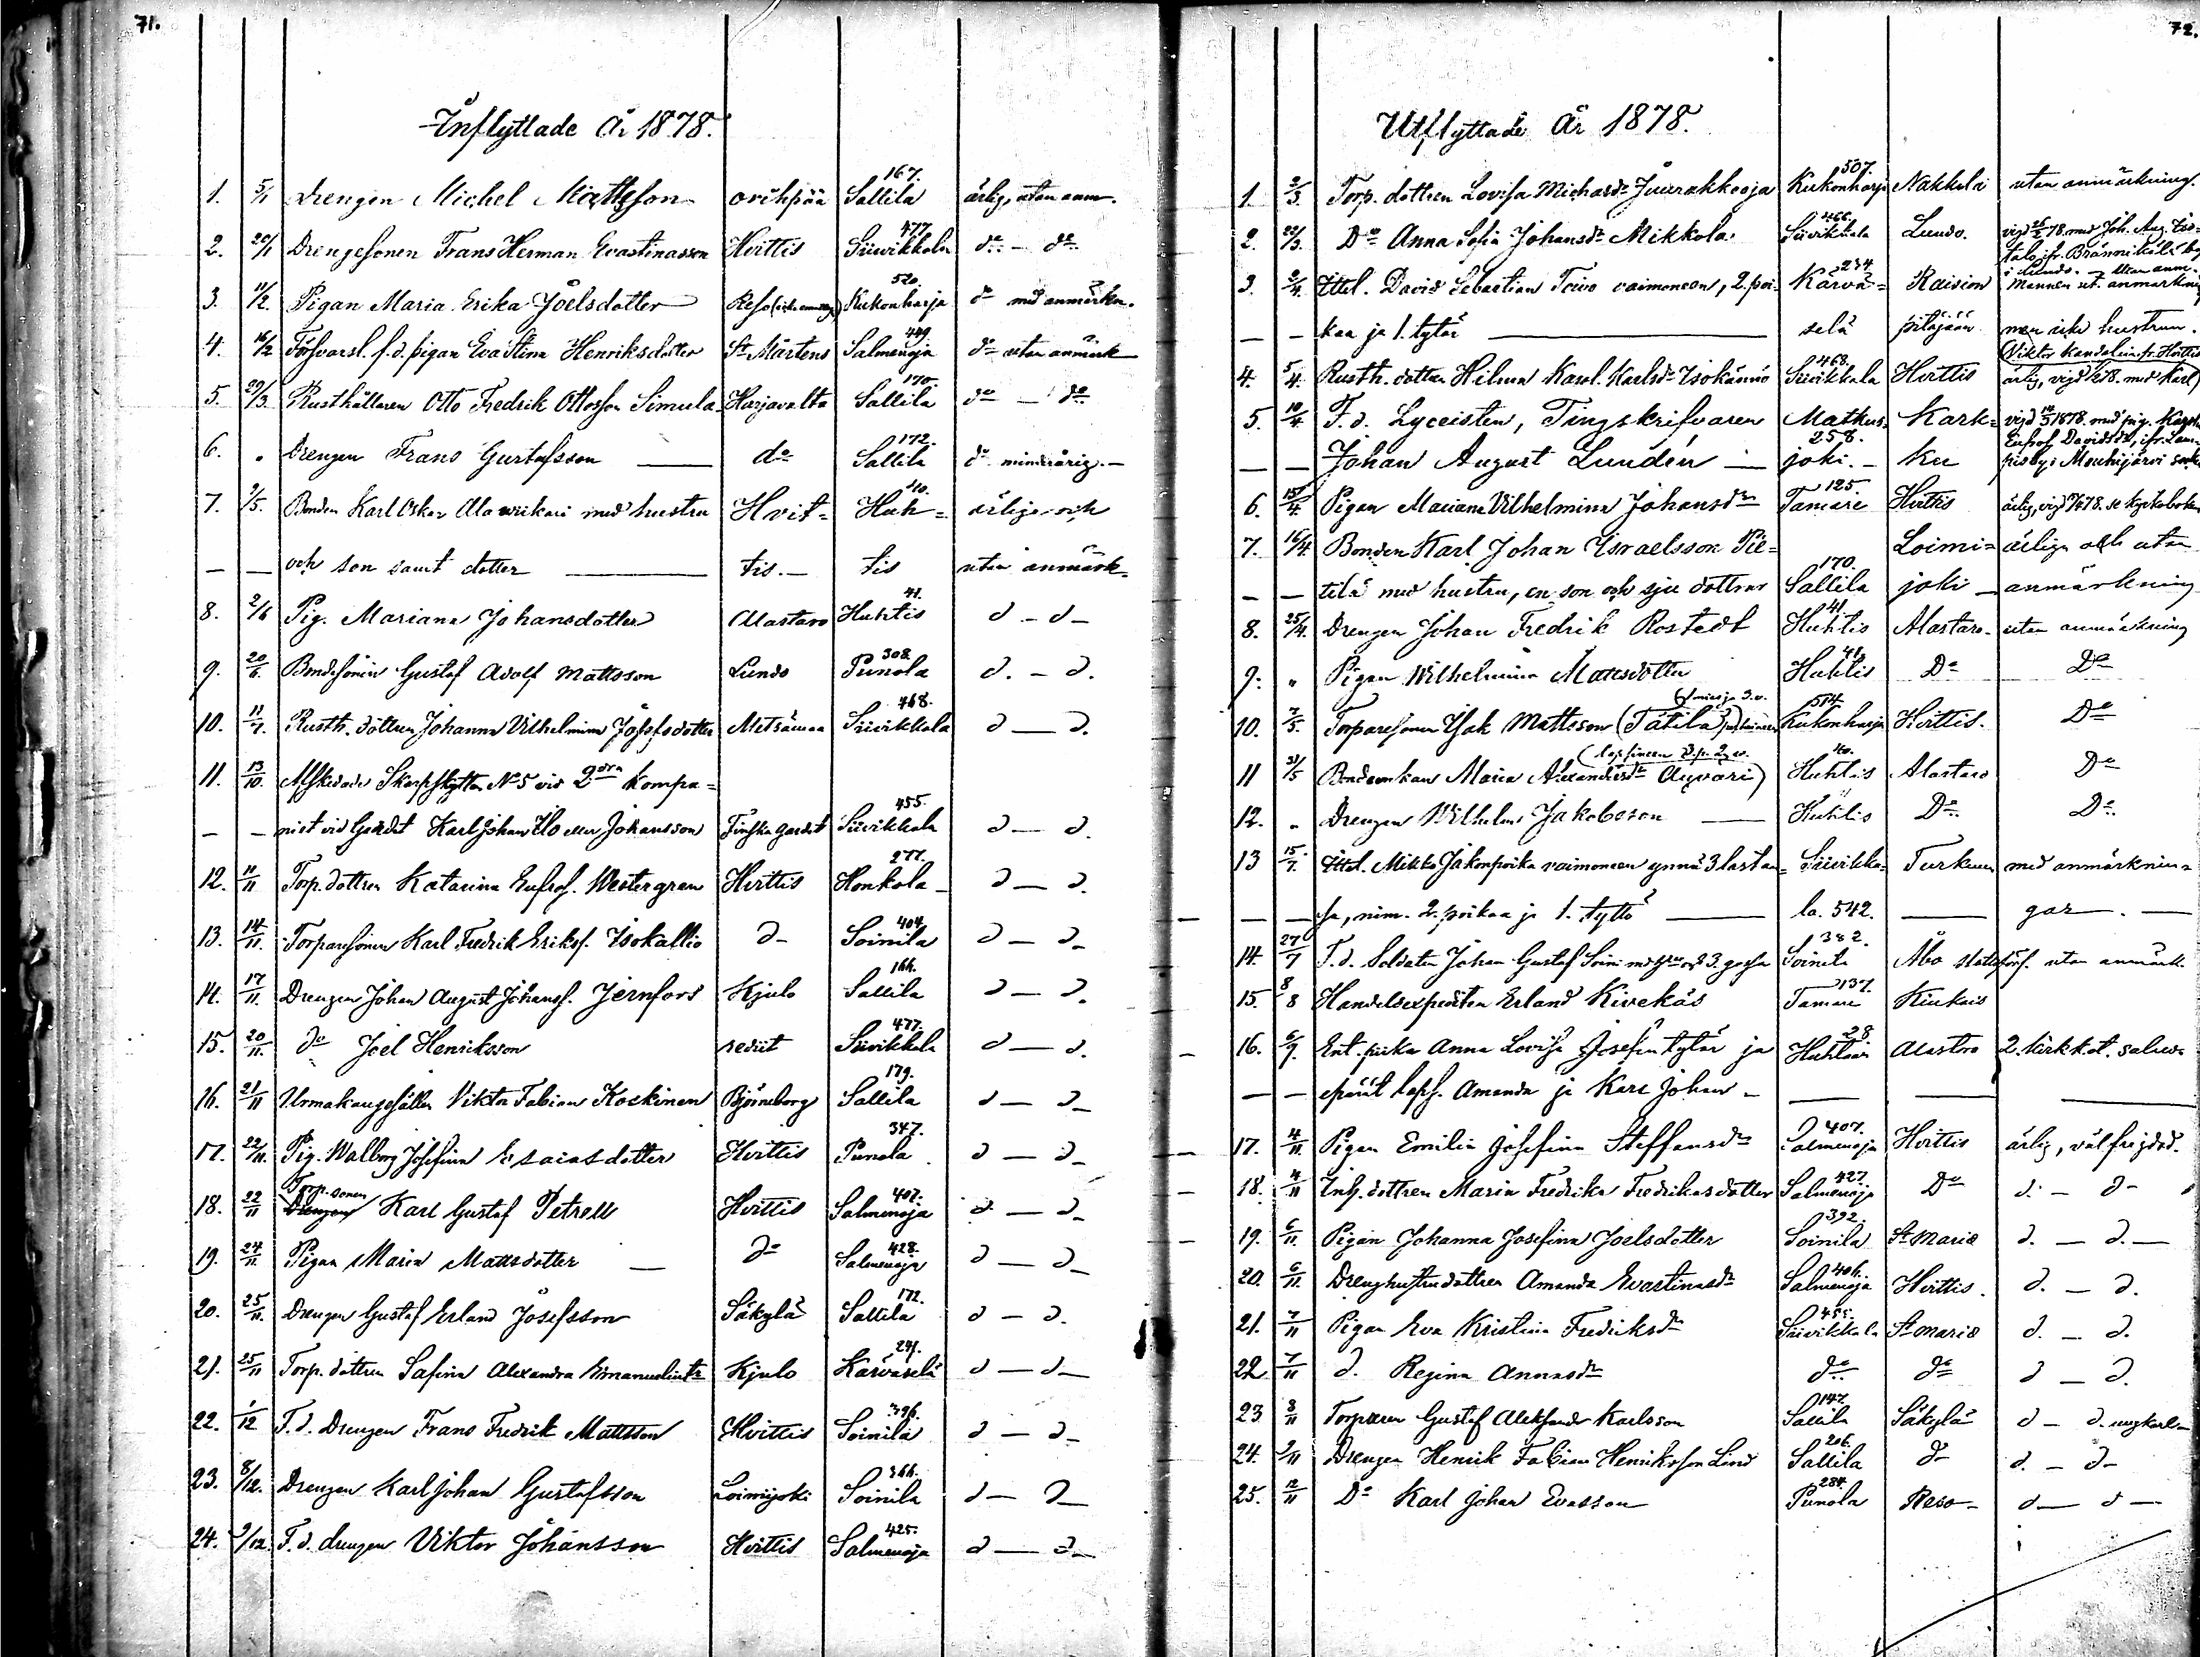 71.
Inflyttade År 1878.
1. 5/1 Drengen Michel Mattsson Orihpää 167. Sallila ärlig, utan anm.
2. 20/1 Drengesonen Frans Herman Evastinasson Hvittis 477. Siivikkala do - do
3. 11/2 Pigan Maria Erika Joelsdotter Reso 520. Kukonharja do med anmärkn.
4. 16/2 f.d. pigan Eva Stina Henriksdotter St Mårtens 449. Salmenoja do utan anmärk
5. 29/3 Rusthållaren Otto Fredrik Ottosson Simula Harjavalta 170. Sallila do - do
6. " Drengen Frans Gustafsson — do 172. Sallila do minderårig. —
7. 2/5. Bonden Karl Oskar Alawiikari med hustru Hvit= 40. Huh= ärliga och
— — och son samt dotter — tis. — tis utan anmärk=
8. 2/6 Pig. Mariana Johansdotter Alastaro 41. Huhtis d - d -
9. 20/6. Bondesonen Gustaf Adolf Mattsson Lundo 308. Punola d. - d.
10. 11/7. Rusth. dottren Johanna Vilhelmina Josefsdotter Metsämaa 468. Siivikkala d — d.
11. 13/10. Afskedade Skarpskytten No 5 vid 2dra Kompa=
— — niet vid Gardet Karl Johan Ilo eller Johansson Finska gardet 455. Siivikkala d — d.
12. 11/11 Torp. dottren Katarina Eufros. Westergren Hvittis 277. Honkola — d — d.
13. 14/11. Torparesonen Karl Fredrik Eriksf. Isokallio d - 404. Soinila d — d -
14. 17/11. Drengen Johan August Johansf. Jernfors Kjulo 166. Sallila d — d.
15. 20/11. do Joel Henriksson rediit 477. Siivikkala d — d.
16. 21/11 Urmakaregesällen Viktor Fabian Koskinen Björneborg 179. Sallila d — d -
17. 22/11. Pig. Walborg Josefina Esaiasdotter Hvittis 347. Punola d — d -
18. 22/11 Torp. sonen Karl Gustaf Petrell Hvittis 407. Salmenoja d — d -
19. 24/11. Pigan Maria Mattsdotter — do 428. Salmenoja d — d -
20. 25/11. Drengen Gustaf Erland Josefsson Säkylä 172. Sallila d — d.
21. 25/11 Torp. dottren Safina Alexandra Emanuelsdtr Kjulo 241. Karvaselä d — d -
22. 1/12 F.d. Drengen Frans Fredrik Mattsson Hvittis 396. Soinila d — d -
23. 8/12. Drengen Karl Johan Gustafsson Loimijoki 366. Soinila d — d —
24. 9/12. F.d. drengen Viktor Johansson Hvittis 425. Salmenoja d — d -
72.
Utflyttade År 1878.
1. 2/3. Torp. dottren Lovisa Michelsdr Juurakkooja 507. Kukonharja Nakkila utan anmärkning.
2. 22/3. Do Anna Sofia Johansdr Mikkola 466. Siivikkala Lundo. vigd 78. med Joh. Aug.
i Lundo. — utan anm.
3. 2/4. Ittel. David Sebastian Toivo vaimoneen, 2. poi- 234 Karva= Raision Mannen ut. anmärkning
— — kaa ja 1. tytär — selä pitäjään men icke hustrun.
4. 5/4. Rusth. dottren Hilma Karol. Karlsdr Isokännö 468. Siivikkala Hvittis ärlig, vigd 78. med Karl Viktor Kandolin fr. Hvittis
5. 10/4. F.d. Lyceisten, Tingskrifvaren Matkus= Kark= vigd 1878. med pig.
— — Johan August Lundén — 258. joki. — ku Eufros. Davidsdr, ifr. by i Mouhijärvi
6. 15/4 Pigan Mariana Vilhelmina Johansdr 125 Tamare Hvittis ärlig, vigd 78. se kyrkoboken
7. 16/4. Bonden Karl Johan Israelsson Pie= Loimi= ärliga och utan
— — tilä med hustru, en son och sju döttrar 170. Sallila joki — anmärkning
8. 25/4. Drengen Johan Fredrik Rostedt 41. Huhtis Alastaro - utan anmärkning
9. " Pigan Wilhelmina Mattsdotter 41. Huhtis Do Do
10. 7/5. Torparesonen Isak Mattsson (Tätilä) 514. Kukonharja Hvittis. Do
11 31/5 Bondeenkan Maria Alexandersdr Äyväri) 40. Huhtis Alastaro Do
12. " Drengen Wilhelm Jakobsson — Huhtis Do Do
13 15/7. Ittel. Mikko Jakonpoika vaimoneen ynnä 3 lastan= Siivikka= Turkuun med anmärknin=
— — sa, nim. 2. poikaa ja 1. tyttö — la. 542. — gar. —
14. 27/7 F.d. Soldaten Johan Gustaf Soini med hru och 3. gossar 382. Soinila Åbo utan anmärk.
15. 8/8 Handelsexpediten Erland Kivekäs 137. Tamare Kiukais
16. 6/9. Ent. piika Anna Lovisa Josefin tytär ja 28. Huhtiss Alastaro 2. kirkk.ot. saliva
— — epäät laps. Amanda ja Karl Johan — — —
17. 4/11. Pigan Emilia Josefina Steffansdr 407. Salmenoja Hvittis ärlig, välfrejdad.
18. 4/11 Inh. dottren Maria Fredrika Fredrikasdotter 427. Salmenoja Do d. - d -
19. 6/11. Pigan Johanna Josefina Joelsdotter 392. Soinila St Marie d. — d. —
20. 6/11. Drenghustrudottren Amanda Evastinasdr 406. Salmenoja Hvittis. d. — d.
21. 7/11 Pigan Eva Kristina Fredriksdr 455. Siivikkala St Marie d. — d.
22 7/11 d. Regina Annasdr do do d — d.
23 8/11 Torparen Gustaf Aleksander Karlsson 147. Sallila Säkylä d — d. ungkarl -
24. 9/11 Drengen Henrik Fabian Henriksson Lind 206. Sallila d - d. — d -
25. 12/11 Do Karl Johan Evasson 284. Punola Reso - d — d —